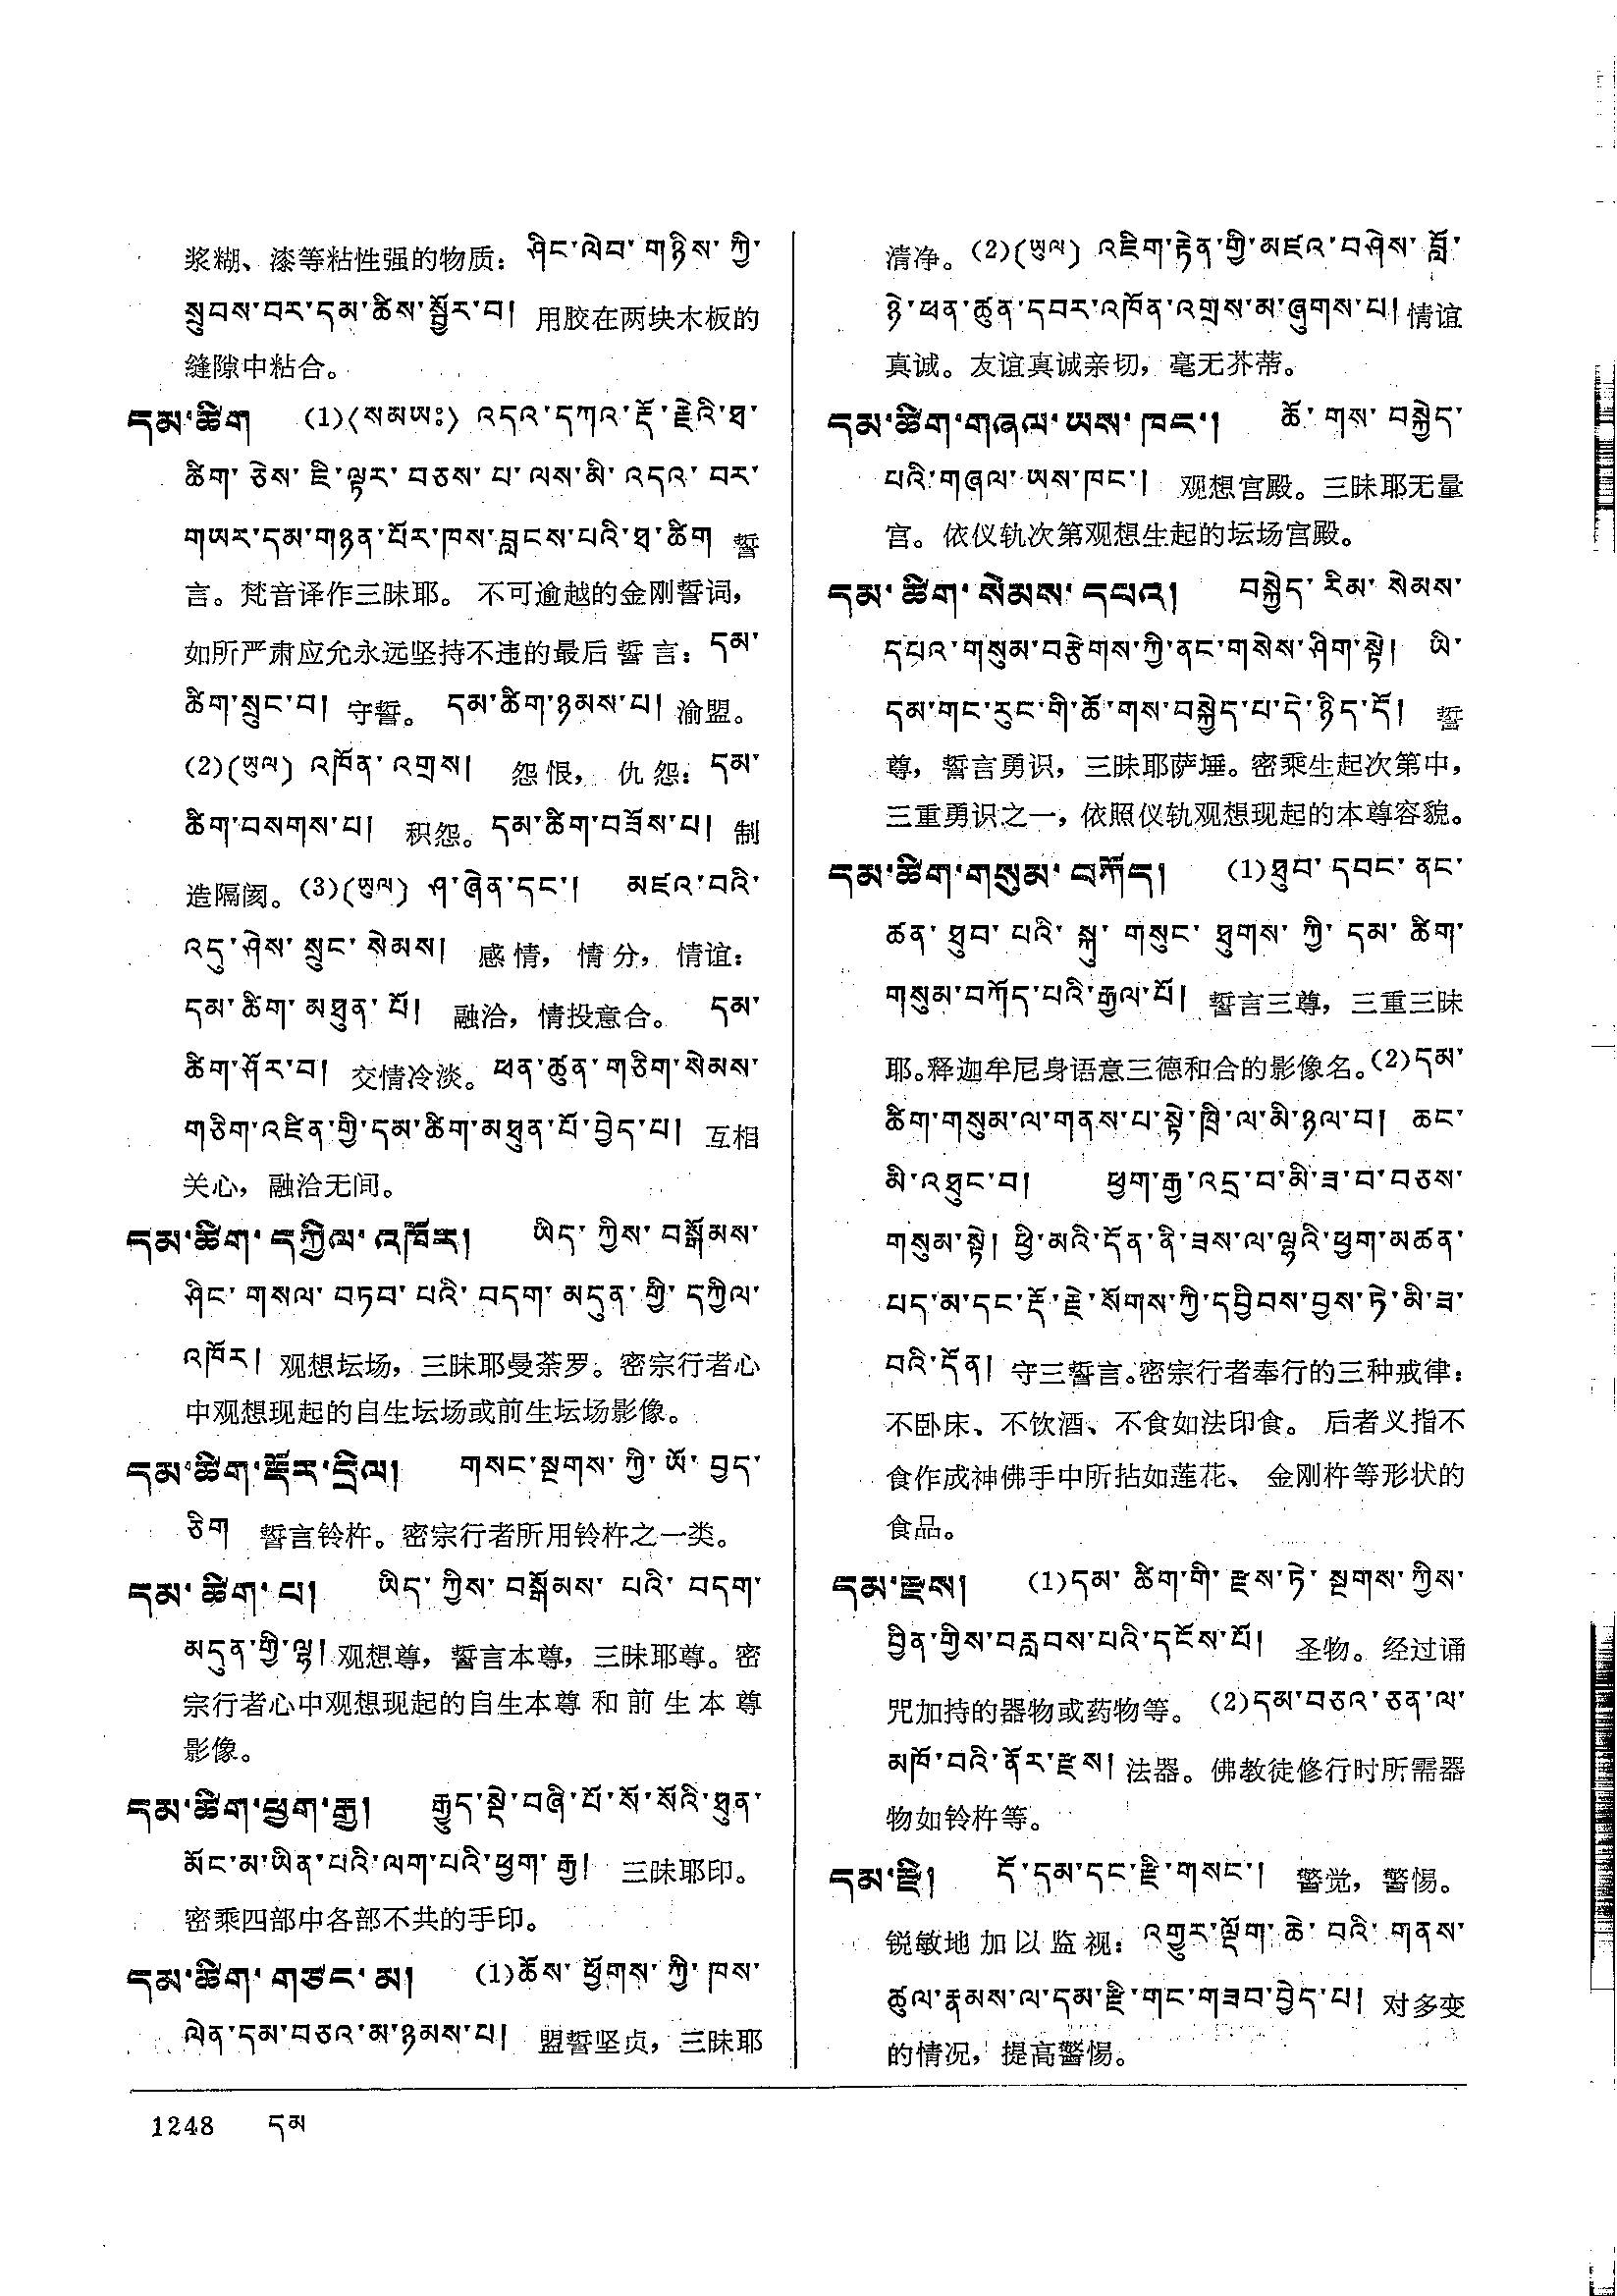 浆糊、漆等粘性强的物质: ཤིང་ལེབ་གཉིས་ཀྱི་
སྲུབས་བར་དམ་ཚིས་སྦྱོར་བ། 用胶在两块木板的
缝隙中粘合。
དམ་ཚིག (1)〈སམཡཿ〉འདའ་དཀའ་རྡོ་རྗེའི་ཐ་
ཚིག་ཅེས་ཇི་ལྟར་བཅས་པ་ལས་མི་འདའ་བར་
གཡར་དམ་གཉན་པོར་ཁས་བླངས་པའི་ཐ་ཚིག 誓
言。梵音译作三昧耶。 不可逾越的金刚誓词,
如所严肃应允永远坚持不违的最后誓言: དམ་
ཚིག་སྲུང་བ། 守誓。 དམ་ཚིག་ཉམས་པ། 渝盟。
(2)(ཡུལ) འཁོན་འགྲས། 怨恨, 仇怨: དམ་
ཚིག་བསགས་པ། 积怨。དམ་ཚིག་བཟོས་པ། 制
造隔阂。(3)(ཡུལ) ཤ་ཞེན་དང་། མཛའ་བའི་
འདུ་ཤེས་སྲུང་སེམས། 感情, 情分, 情谊:
དམ་ཚིག་མཐུན་པོ། 融洽, 情投意合。 དམ་
ཚིག་ཤོར་བ། 交情冷淡。ཕན་ཚུན་གཅིག་སེམས་
གཅིག་འཛིན་གྱི་དམ་ཚིག་མཐུན་པོ་བྱེད་པ། 互相
关心, 融洽无间。
དམ་ཚིག་དཀྱིལ་འཁོར། ཡིད་ཀྱིས་བསྒོམས་
ཤིང་གསལ་བཏབ་པའི་བདག་མདུན་གྱི་དཀྱིལ་
འཁོར། 观想坛场, 三昧耶曼荼罗。密宗行者心
中观想现起的自生坛场或前生坛场影像。
དམ་ཚིག་རྡོར་དྲིལ། གསང་སྔགས་ཀྱི་ཡོ་བྱད་
ཅིག 誓言铃杵。密宗行者所用铃杵之一类。
དམ་ཚིག་པ། ཡིད་ཀྱིས་བསྒོམས་པའི་བདག་
མདུན་གྱི་ལྷ། 观想尊, 誓言本尊, 三昧耶尊。密
宗行者心中观想现起的自生本尊和前生本尊
影像。
དམ་ཚིག་ཕྱག་རྒྱ། རྒྱུད་སྡེ་བཞི་པོ་སོ་སོའི་ཐུན་
མོང་མ་ཡིན་པའི་ལག་པའི་ཕྱག་རྒྱ། 三昧耶印。
密乘四部中各部不共的手印。
དམ་ཚིག་གཙང་མ། (1)ཆོས་ཕྱོགས་ཀྱི་ཁས་
ལེན་དམ་བཅའ་མ་ཉམས་པ། 盟誓坚贞, 三昧耶
清净。(2)(ཡུལ) འཇིག་རྟེན་གྱི་མཛའ་བཤེས་བློ་
ཉེ་ཕན་ཚུན་དབར་འཁོན་འགྲས་མ་ཞུགས་པ། 情谊
真诚。友谊真诚亲切, 毫无芥蒂。
དམ་ཚིག་གཞལ་ཡས་ཁང་། ཆོ་གས་བསྐྱེད་
པའི་གཞལ་ཡས་ཁང་། 观想宫殿。三昧耶无量
宫。依仪轨次第观想生起的坛场宫殿。
དམ་ཚིག་སེམས་དཔའ། བསྐྱེད་རིམ་སེམས་
དཔའ་གསུམ་བརྩེགས་ཀྱི་ནང་གསེས་ཤིག་སྟེ། ཡི་
དམ་གང་རུང་གི་ཆོ་གས་བསྐྱེད་པ་དེ་ཉིད་དོ། 誓
尊, 誓言勇识, 三昧耶萨埵。密乘生起次第中,
三重勇识之一, 依照仪轨观想现起的本尊容貌。
དམ་ཚིག་གསུམ་བཀོད། (1)ཐུབ་དབང་ནང་
ཚན་ཐུབ་པའི་སྐུ་གསུང་ཐུགས་ཀྱི་དམ་ཚིག་
གསུམ་བཀོད་པའི་རྒྱལ་པོ། 誓言三尊, 三重三昧
耶。释迦牟尼身语意三德和合的影像名。(2)དམ་
ཚིག་གསུམ་ལ་གནས་པ་སྟེ་ཁྲི་ལ་མི་ཉལ་བ། ཆང་
མི་འཐུང་བ། ཕྱག་རྒྱ་འདྲ་བ་མི་ཟ་བ་བཅས་
གསུམ་སྟེ། ཕྱི་མའི་དོན་ནི་ཟས་ལ་ལྷའི་ཕྱག་མཚན་
པད་མ་དང་རྡོ་རྗེ་སོགས་ཀྱི་དབྱིབས་བྱས་ཏེ་མི་ཟ་
བའི་དོན། 守三誓言。密宗行者奉行的三种戒律:
不卧床、不饮酒、不食如法印食。 后者义指不
食作成神佛手中所拈如莲花、 金刚杵等形状的
食品。
དམ་རྫས། (1)དམ་ཚིག་གི་རྫས་ཏེ་སྔགས་ཀྱིས་
བྱིན་གྱིས་བརླབས་པའི་དངོས་པོ། 圣物。经过诵
咒加持的器物或药物等。(2)དམ་བཅའ་ཅན་ལ་
མཁོ་བའི་ནོར་རྫས། 法器。佛教徒修行时所需器
物如铃杵等。
དམ་རྫི། དོ་དམ་དང་རྫི་གསང་། 警觉, 警惕。
锐敏地加以监视: འགྱུར་ལྡོག་ཆེ་བའི་གནས་
ཚུལ་རྣམས་ལ་དམ་རྫི་གང་གཟབ་བྱེད་པ། 对多变
的情况, 提高警惕。
1248 དམ